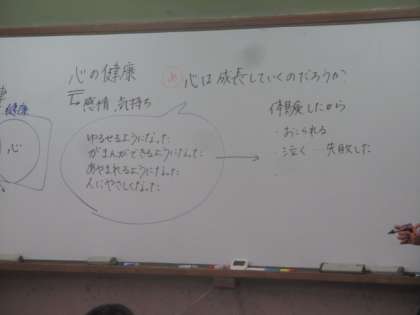 健康
心
心の健康
感情、気持ち
め 心は成長していくのだろうか?
ゆるせるようになった
がまんができるようになった
あやまれるようになった
人にやさしくなった
体験したから
・おこられる
・泣く … 失敗した
・